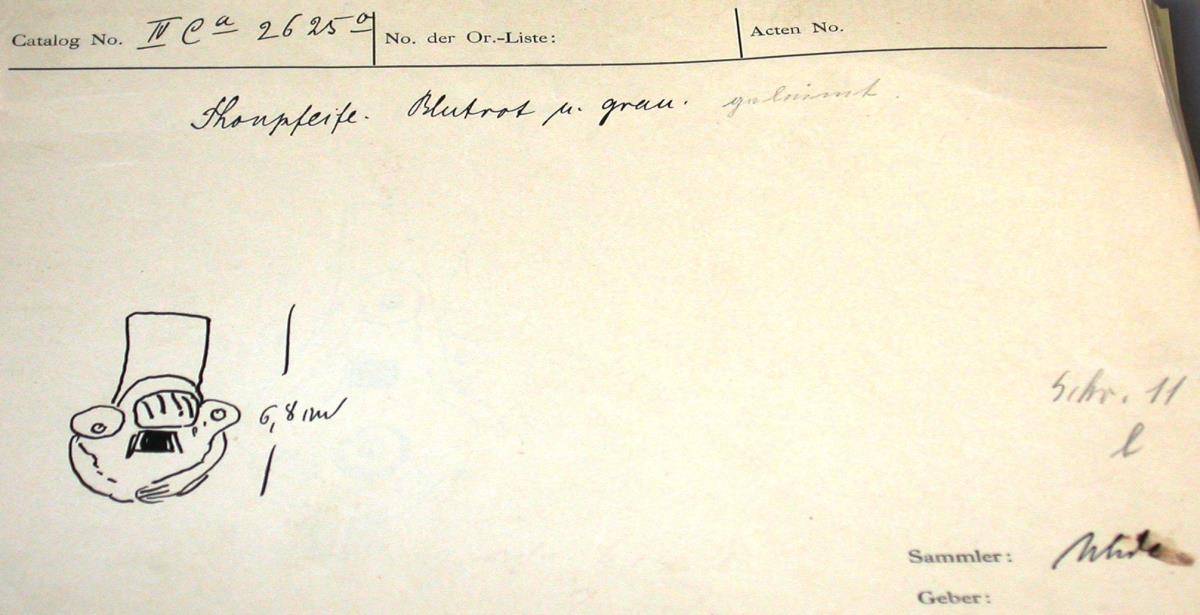 Catalog No. IV Ca 2625a No. der Or.-Liste: Acten No.
Thonpfeife. Blutrot u. grau. geleimt.
6,8 cm
Schr. 11
l
Sammler: Uhde
Geber: